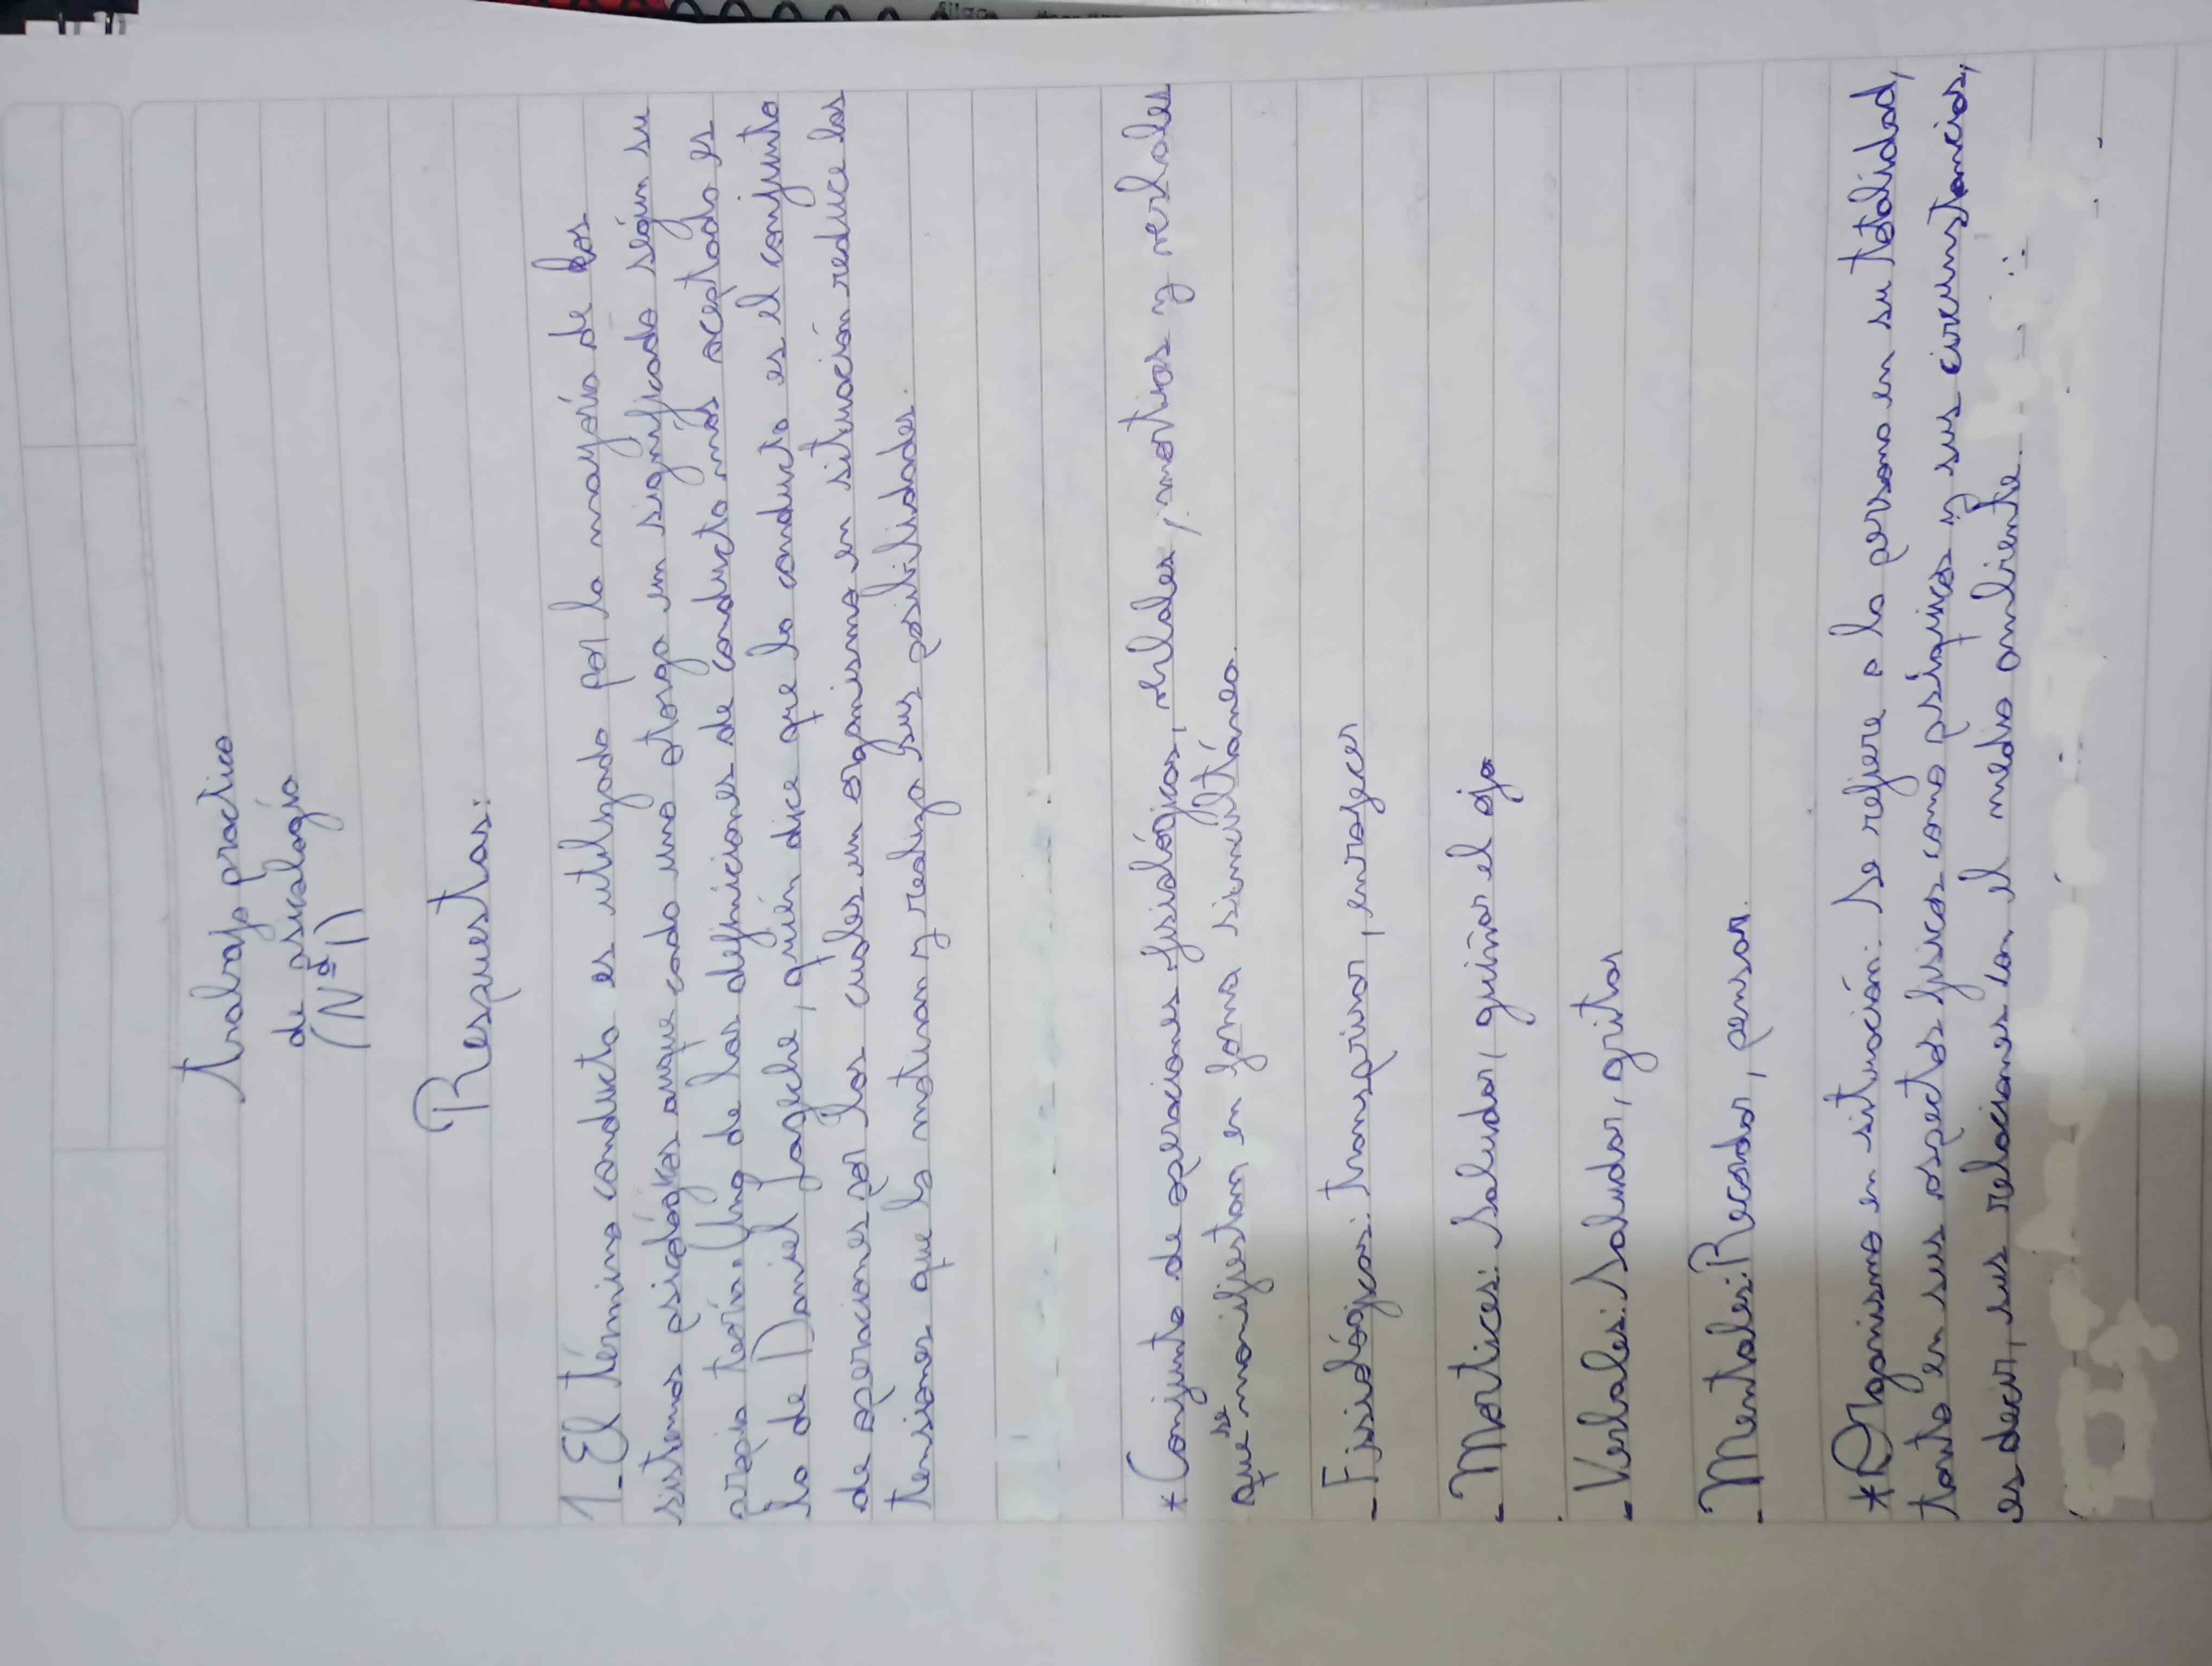 trabajo practico
de psicología
(Nº1)
Respuestas:
1_El término conducta es utilizado por la mayoría de los
sistemas psicológicos auque cada uno otorga un significado según su
propia teoría. Una de las definiciones de conducta más aceptada es
la de Daniel Lagache, quién dice que la conducta es el conjunto
de operaciones por las cuales un organismo en situación reduce las
tensiones que lo motivan y realiza sus posibilidades.
*Conjunto de operaciones fisiológicas, verbales, mortias y verbales
que se manifiestan en forma simultánea.
-Fisiológicas: transpirar, enrojecer
-Mortices: Saludar, guiñar el ojo
-Verbales: Saludar, gritar
-Mentales: Recordar, pensar.
*Organismo en situación: Se refiere a la persona en su totalidad,
tanto en sus aspectos fisicos como psíquicos y sus circunstancias,
es decir, sus relaciones con el medio ambiente.